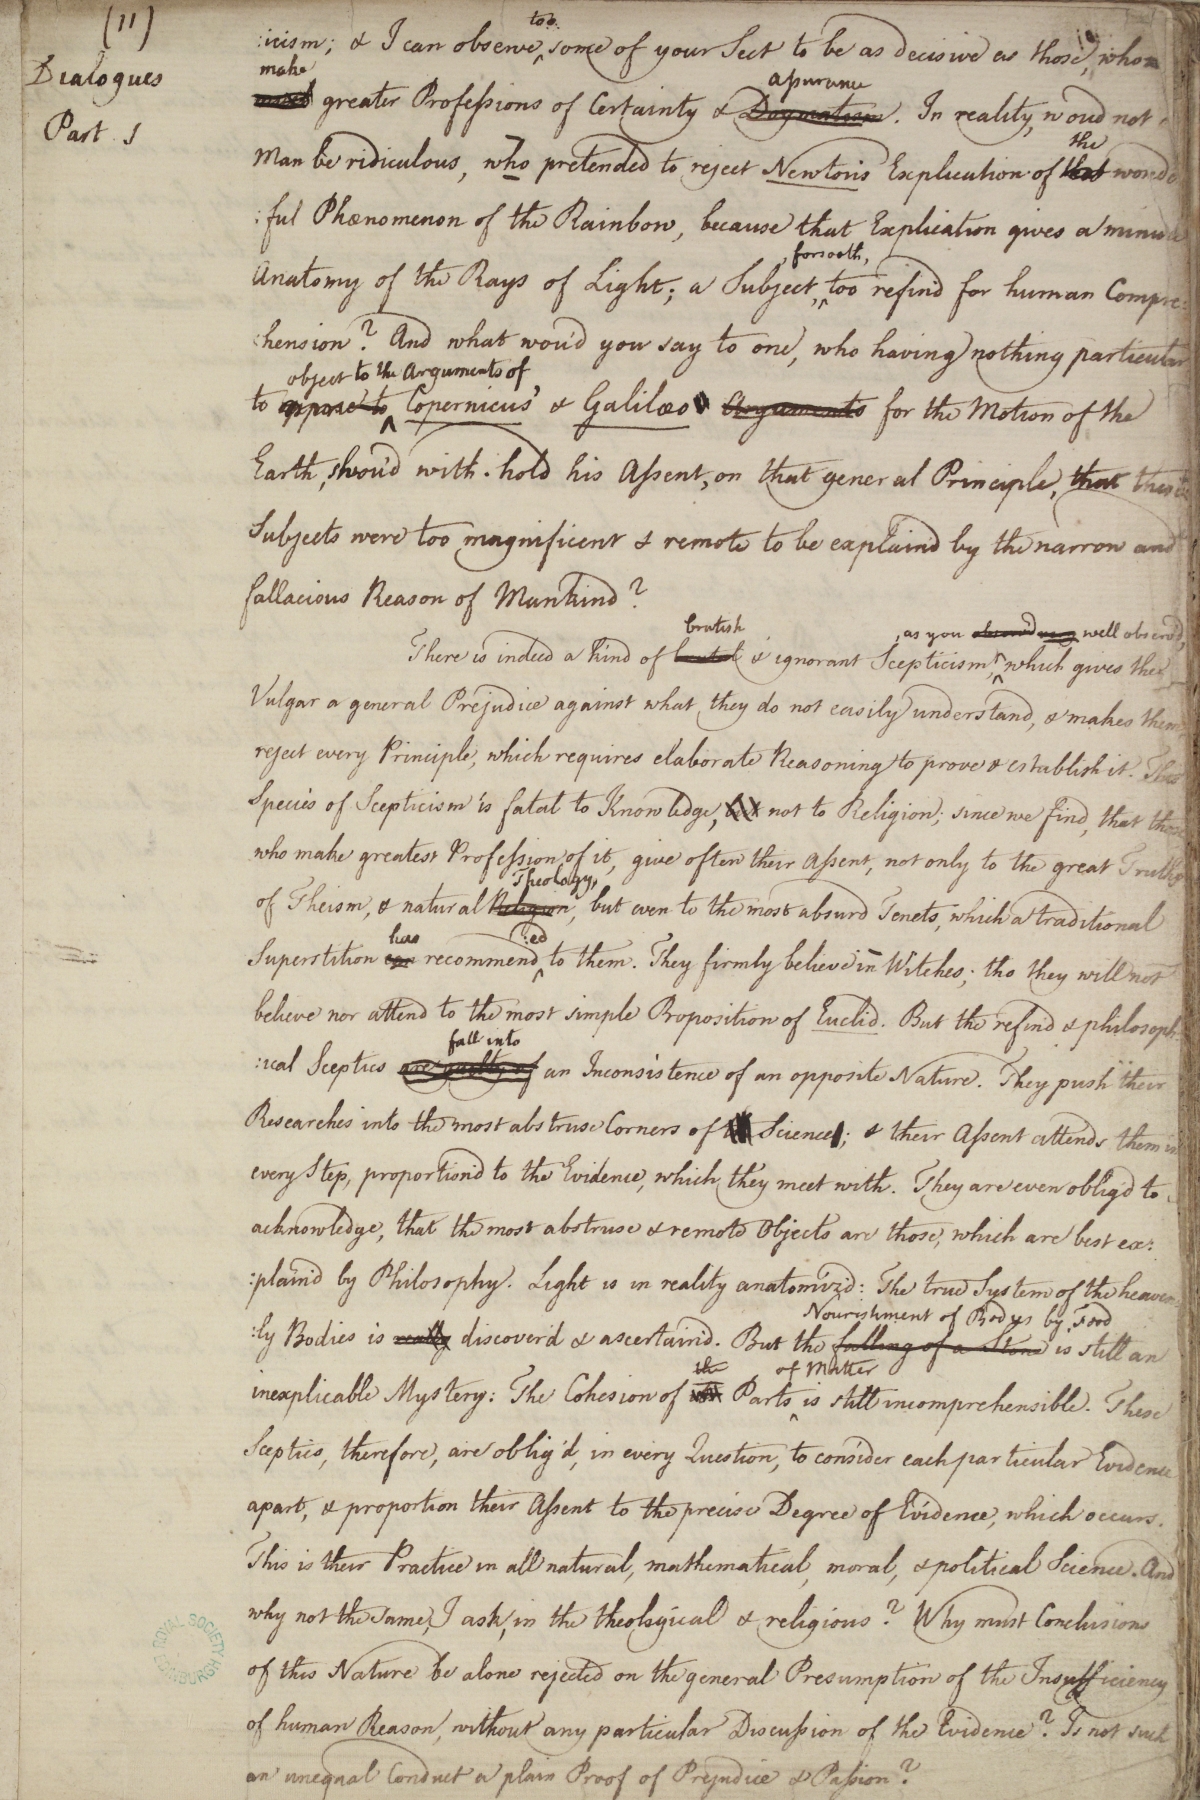 (11)
Dialogues
Part. 1
too
:icism; & I can observe, some of your Sect to be as decisive as those, who
make
greater Professions of Certainty &
assurance
Dogmatism. In reality, woud not a
Man be ridiculous, who pretended to reject Newton's Explication of
the
that wonder
:ful Phænomenon of the Rainbow, because that Explication gives a minute
Anatomy of the Rays of Light; a Subject,
forsooth,
too refin'd for human Compre:
:hension? And what wou'd you say to one, who having nothing particular
object to the Arguments of
to oppose to Copernicus' & Galilæo Arguments for the Motion of the
Earth, shou'd with-hold his Assent, on that general Principle, that these
Subjects were too magnificent & remote to be explain'd by the narrow and
fallacious Reason of Mankind?
brutish
as you well observ'd,
There is indeed a kind of brutal & ignorant Scepticism, which gives the
Vulgar a general Prejudice against what they do not easily understand, & makes them
reject every Principle, which requires elaborate Reasoning to prove & establish it. This
Species of Scepticism is fatal to Knowledge, but not to Religion; since we find, that those
who make greatest Profession of it, give often their Assent, not only to the great Truths
Theology,
of Theism, & natural Religion, but even to the most absurd Tenets, which a traditional
has
:ed
Superstition can recommend to them. They firmly believe in Witches; tho they will not
believe nor attend to the most simple Proposition of Euclid. But the refin'd & philosoph:
fall into
:ical Sceptics are guilty of an Inconsistence of an opposite Nature. They push their
Researches into the most abstruse Corners of Science; & their Assent attends them in
every Step, proportion'd to the Evidence, which they meet with. They are even oblig'd to
acknowledge, that the most abstruse & remote Objects are those, which are best ex:
:plain'd by Philosophy. Light is in reality anatomiz'd: The true System of the heaven:
Nourishment of Bodys by Food
:ly Bodies is really discover'd & ascertain'd. But the falling of a Stone is still an
the
of Matter
inexplicable Mystery: The Cohesion of Parts is still incomprehensible. These
Sceptics, therefore, are oblig'd, in every Question, to consider each particular Evidence
apart, & proportion their Assent to the precise Degree of Evidence, which occurs.
This is their Practice in all natural, mathematical, moral, & political Science. And
why not the same, I ask, in the theological & religious? Why must Conclusions
of this Nature be alone rejected on the general Presumption of the Insufficiency
of human Reason, without any particular Discussion of the Evidence? Is not such
an unequal Conduct a plain Proof of Prejudice & Passion?
ROYAL SOCIETY
EDINBURGH